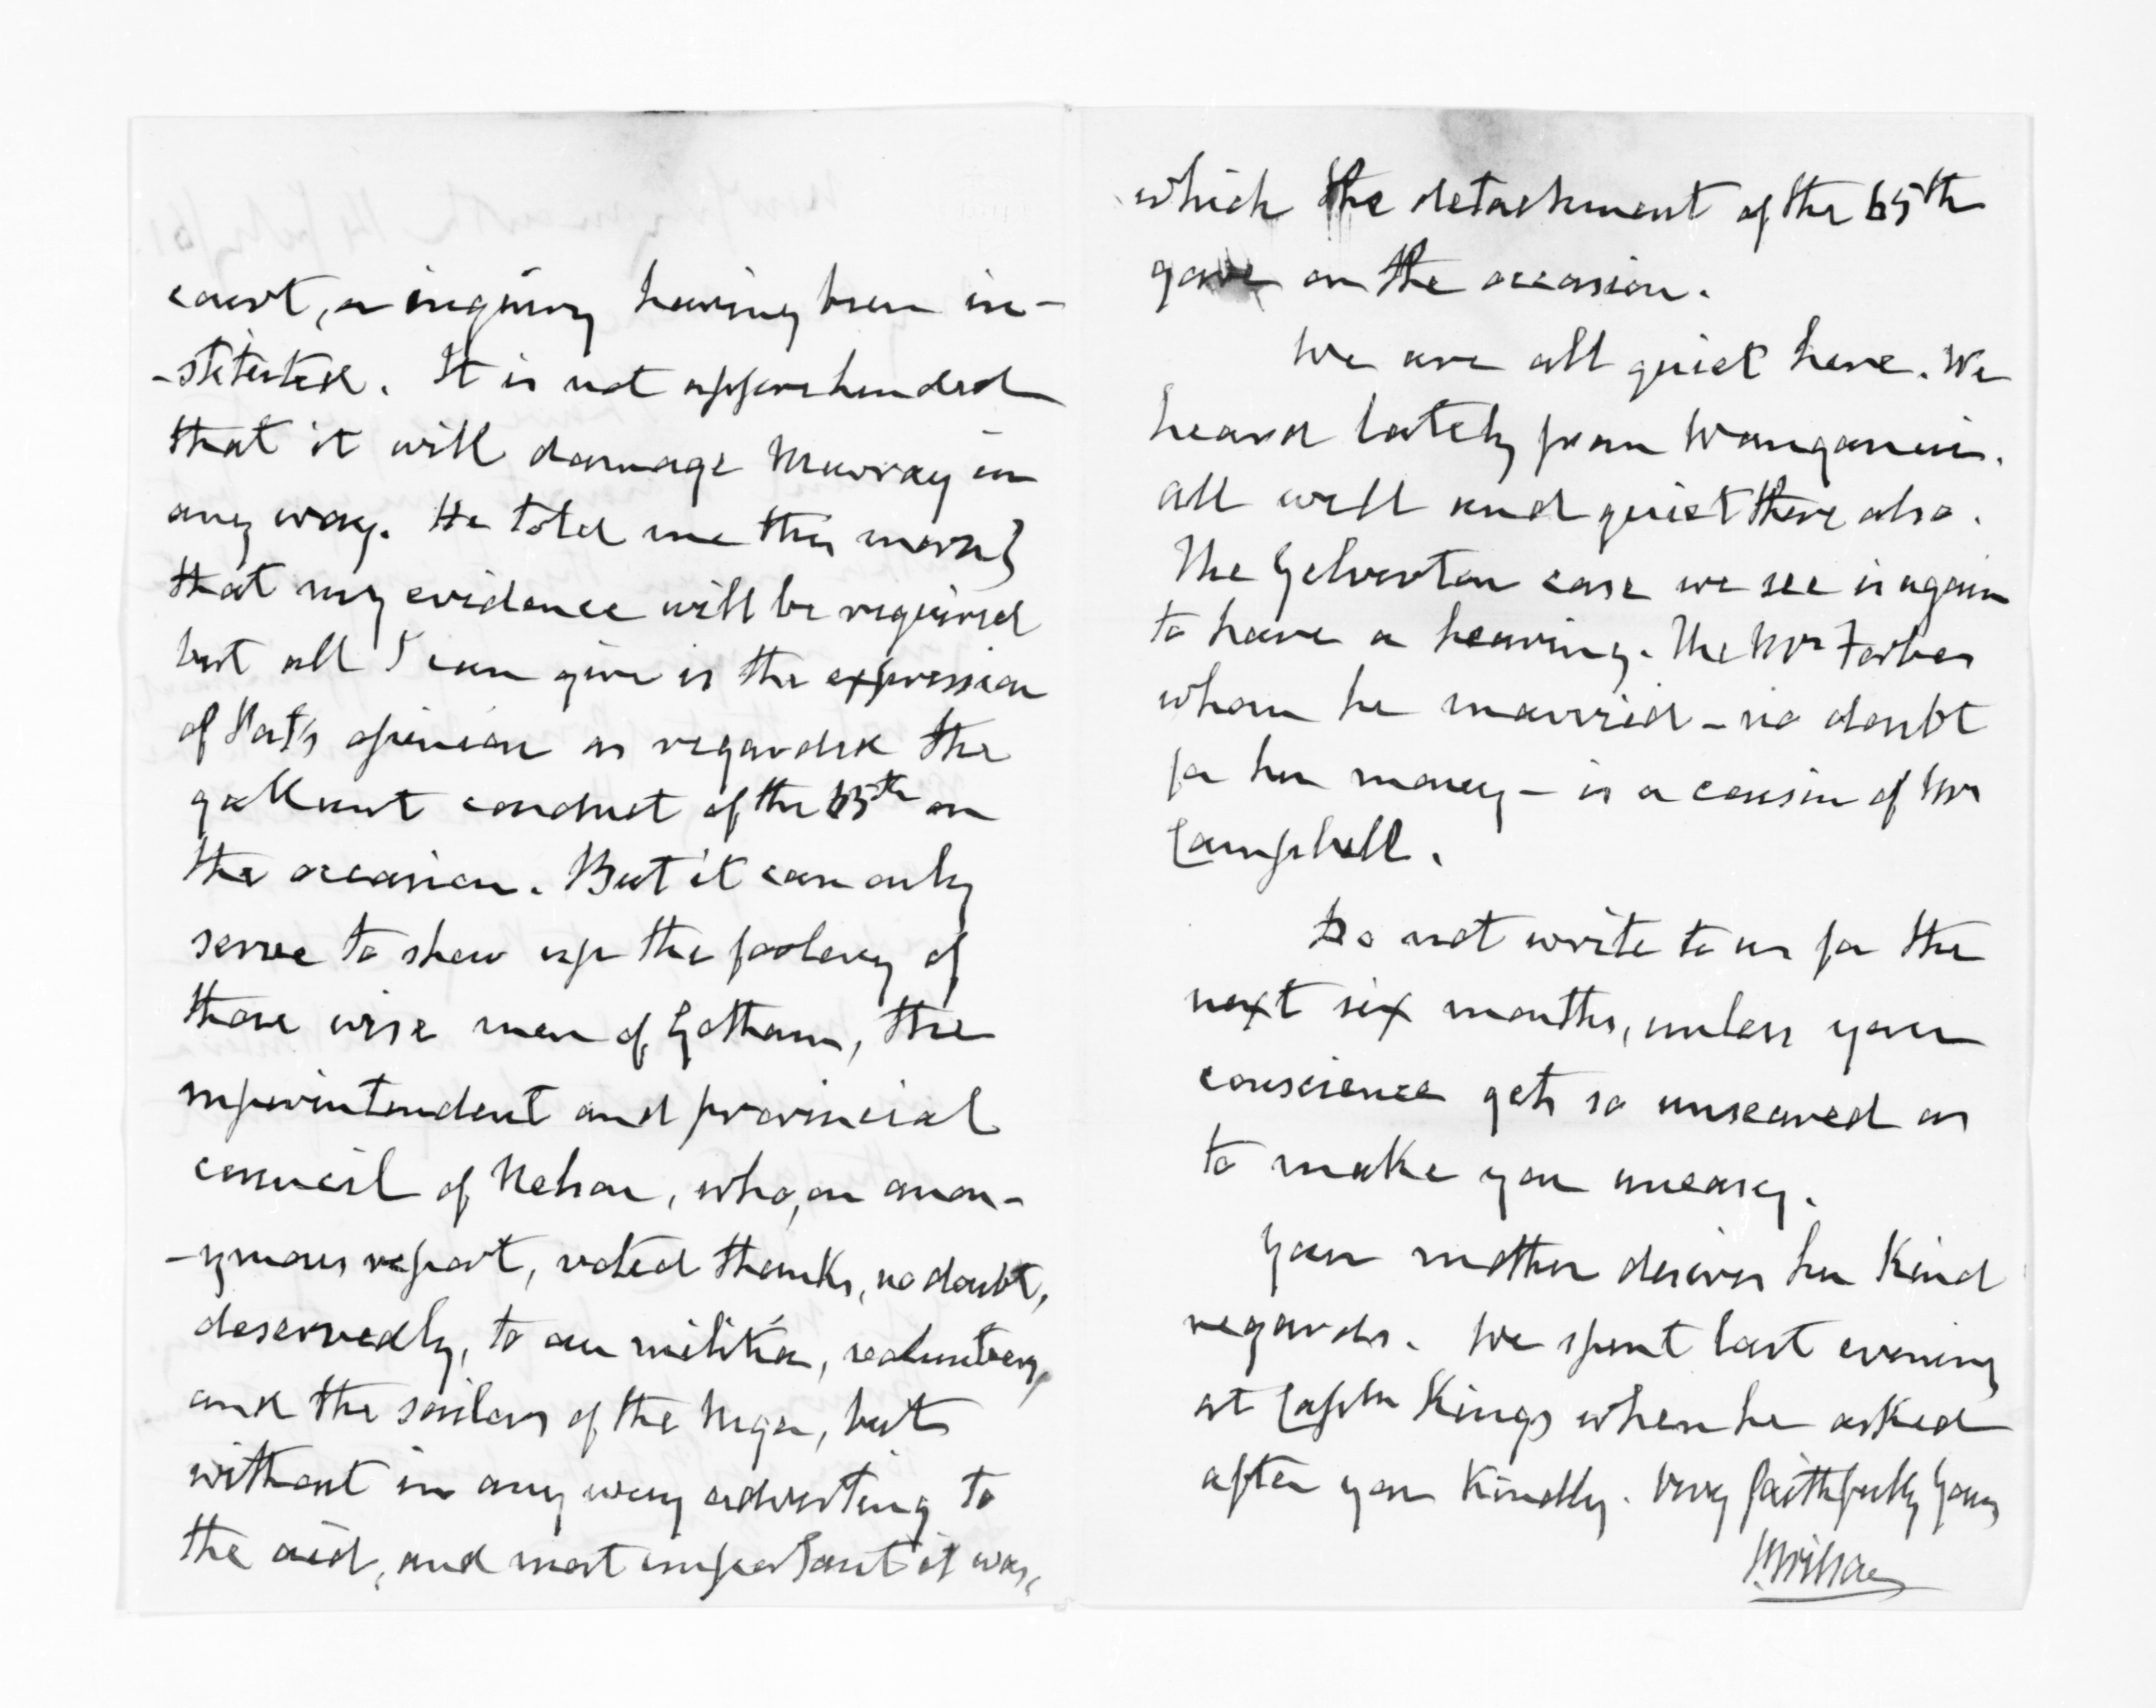 court, or inquiry having been in-
-stituted. It is not apprehended
that it will damage Murray in
any way. He told me this morng
that my evidence will be required
but all I can give is the expression
of Pat's opinion as regards the
gallant conduct of the 65th on
the occasion. But it can only
serve to shew up the foolery of
those wise men of Gotham, the
superintendent and provincial
council of Nelson, who, on anon-
-ymous report, voted thanks, no doubt,
deservedly, to our militia, volunteers,
and the sailors of the Niger, but
without in any way adverting to
the aid, and most important it was,
which the detachment of the 65th
gave on the occasion.
We are all quiet here. We
heard lately from Wanganui.
all well and quiet there also.
The Yelverton case we see is again
to have a hearing. The Mrs Forbes
whom he married - no doubt
for her money - is a cousin of Mrs
Campbell.
Do not write to us for the
next six months, unless your
conscience gets so unseared as
to make you uneasy.
Your mother desires her kind
regards. We spent last evening
at Captn Kings when he asked
after you kindly. Very faithfully yours
P. Wilson